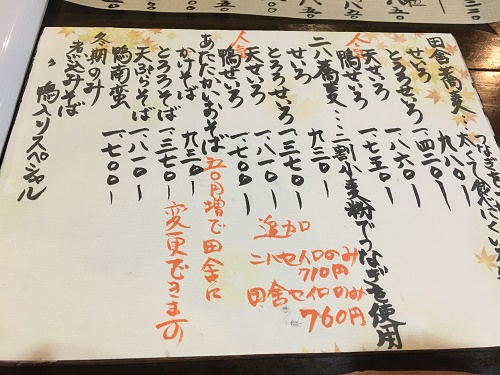 田舎蕎麦
せいろ 九八〇ー
とろろせいろ 一、四二〇ー
天せいろ 一、八六〇ー
人気 鴨せいろ 一、七五〇ー
二八蕎麦…二割小麦粉でつなぎを使用
せいろ 九三〇ー
とろろせいろ 一、三七〇ー
天せいろ 一、八一〇ー
人気 鴨せいろ 一、七〇〇ー
あたたかいおそば 五〇円増で田舎に変更できます
かけそば 九三〇ー
とろろそば 一、三七〇ー
天ぷらそば 一、八一〇ー
鴨南蛮 一、七〇〇ー
冬期のみ
煮込みそば
〃 鴨入りスペシャル
追加
二八セイロのみ
710円
田舎セイロのみ
760円